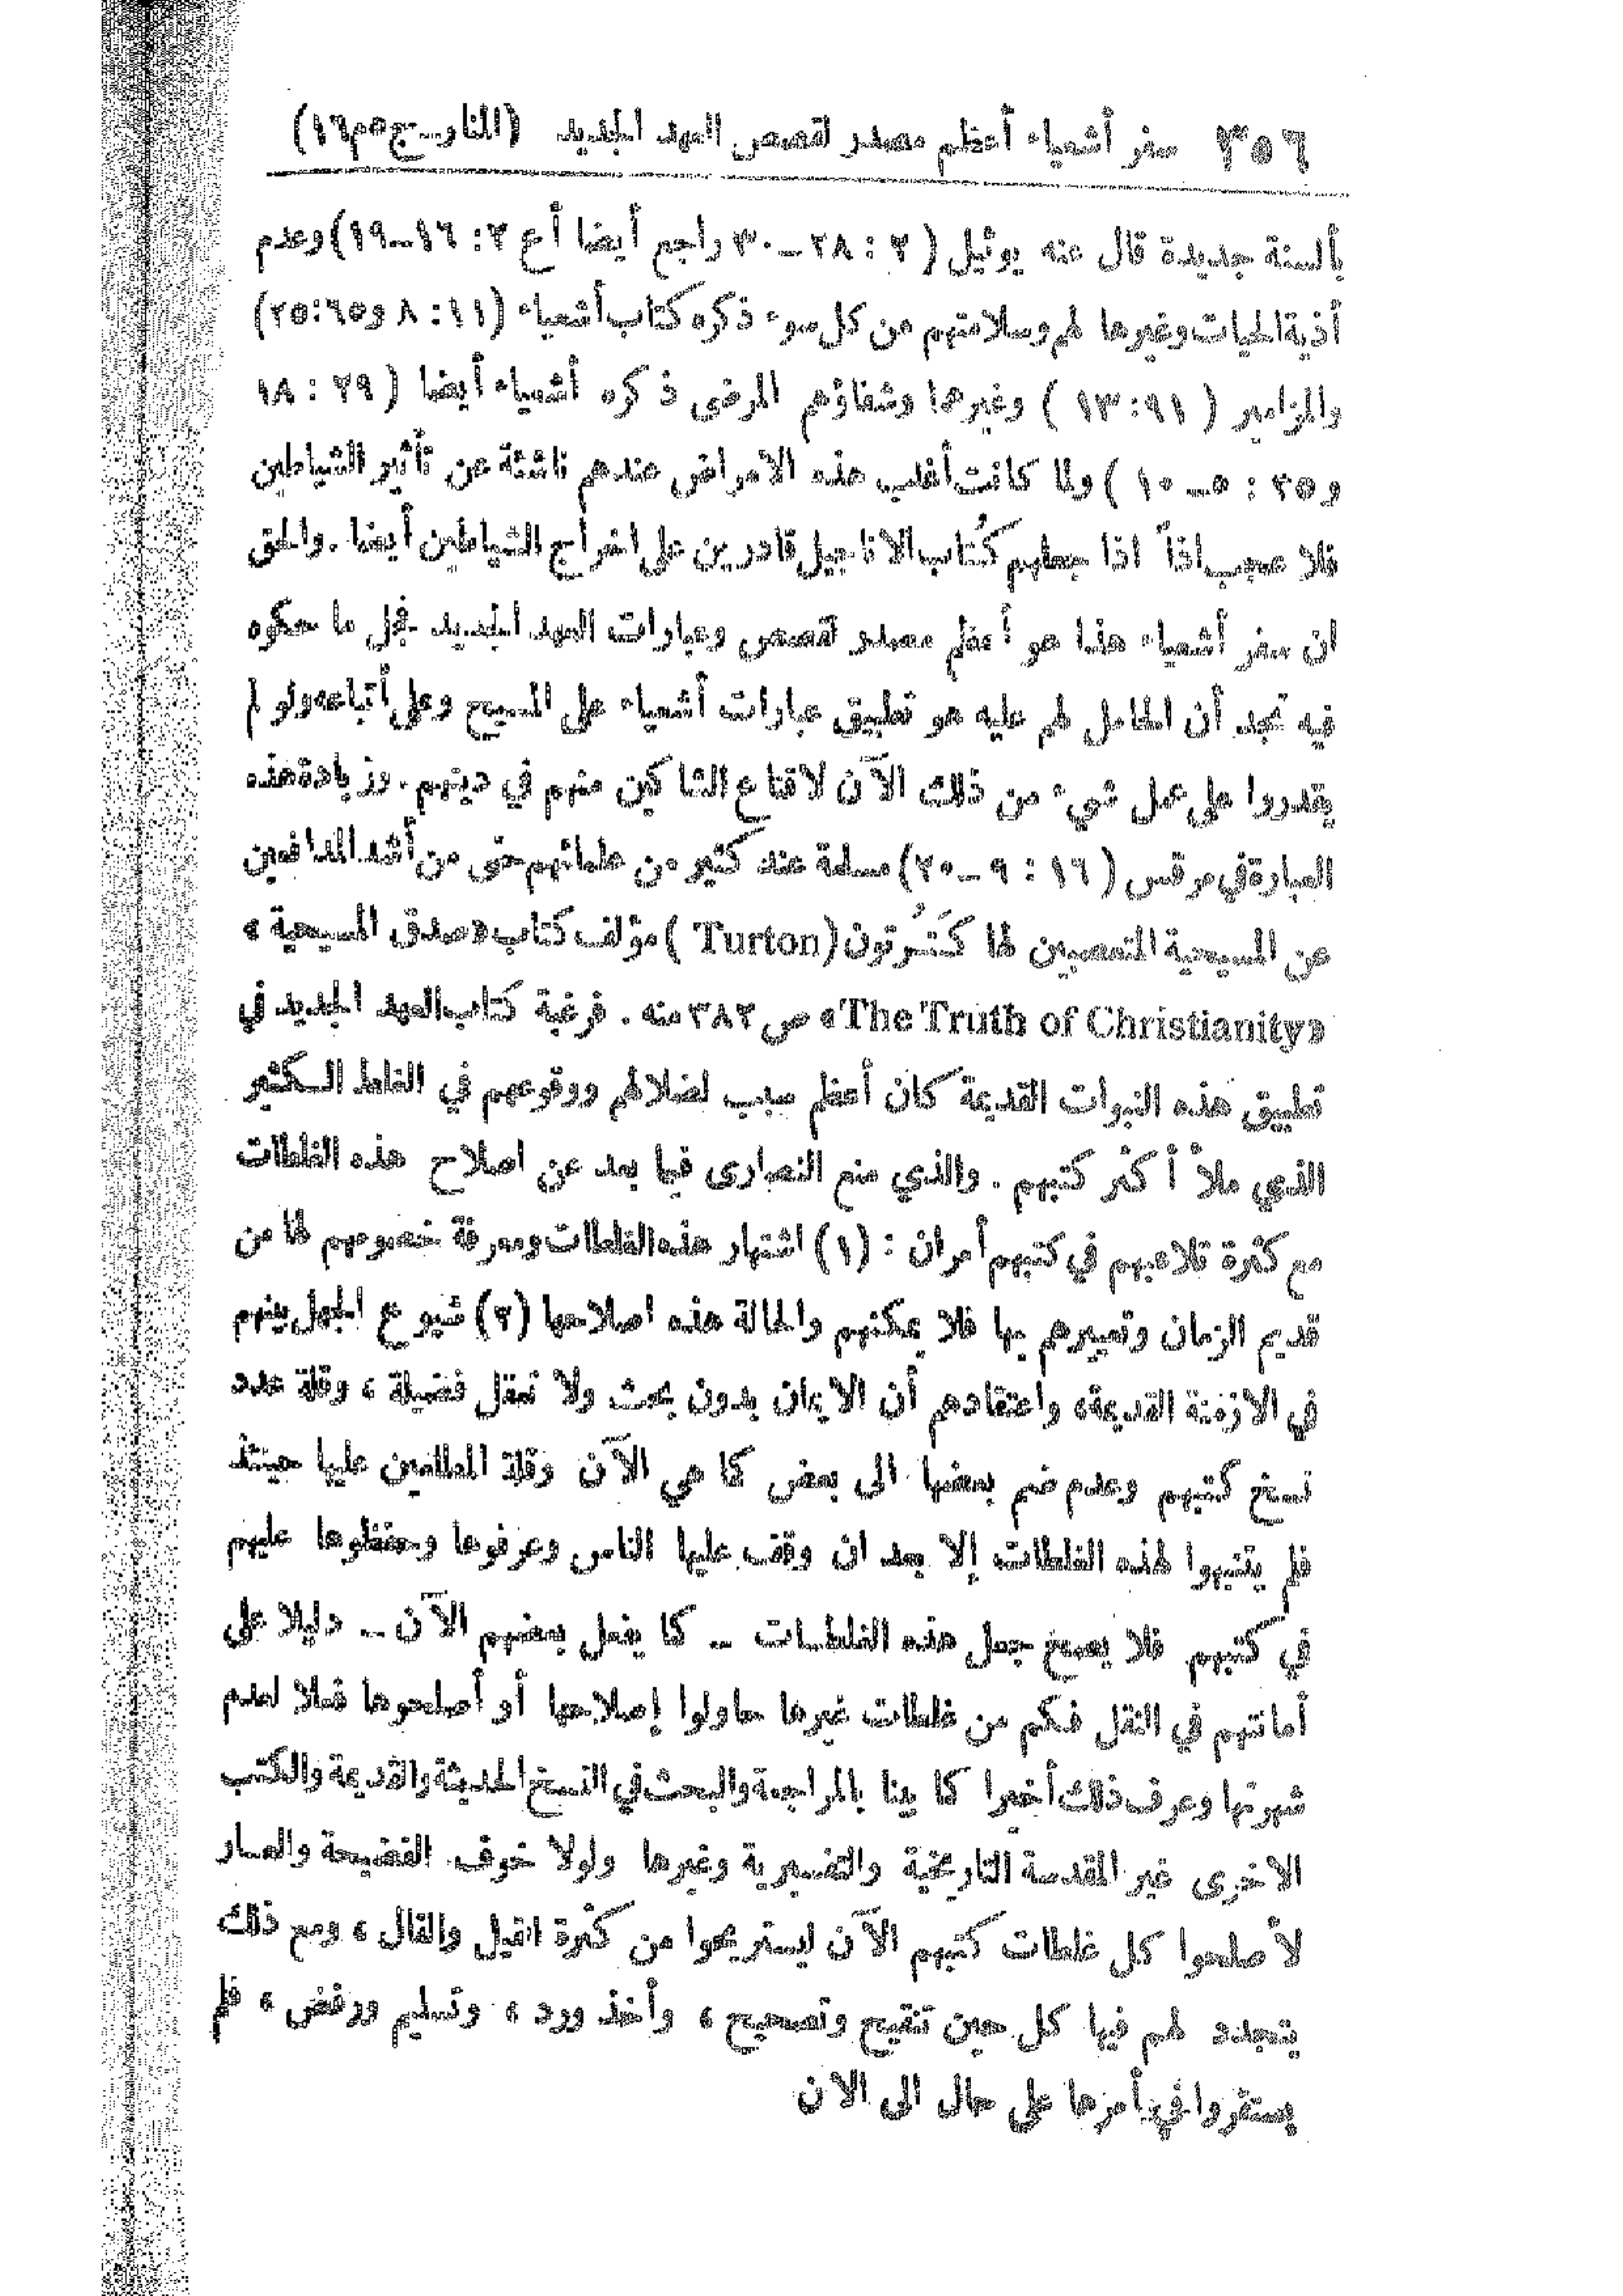 ٣٥٦ سفر أشعياء أعظم مصدر لقصص العهد الجديد (المنار-ج٥م١٦)
بألسنة جديدة قال عنه يوئيل ( ٢ : ٢٨ – ٣٠ راجع أيضا أع ٢: ١٦–١٩) وعدم
أذية الحيات وغيرها لهم وسلامتهم من كل سوء ذكره كتاب أشعياء (١١: ٨ و٦٥:٢٥)
والمزامير ( ٩١:١٣ ) وغيرها وشفاؤهم المرضى ذكره أشعياء أيضا ( ٢٩ : ١٨
و٣٥ : ٥ – ١٠ ) ولما كانت أغلب هذه الامراض عندهم ناشئة عن تأثير الشياطين
فلا عجب اذاً اذا جعلهم كُتاب الاناجيل قادرين على اخراج الشياطين أيضا . والحق
ان سفر أشعياء هذا هو أعظم مصدر لقصص وعبارات العهد الجديد فجل ما حكوه
فيه تجد أن الحامل لهم عليه هو تطبيق عبارات أشعياء على المسيح وعلى أتباعه ولو لم
يقدروا على عمل شيء من ذلك الآن لاقناع الشاكين منهم في دينهم . وزيادة هذه
العبارة في مرقس ( ١٦ : ٩ – ٢٠) مسلمة عند كثير من علمائهم حتى من أشد المدافعين
عن المسيحية المتعصبين لها كَتُرتون (Turton ) مؤلف كتاب «صدق المسيحية »
«The Truth of Christianity» ص ٣٨٢ منه . فرغبة كتاب العهد الجديد في
تطبيق هذه النبوات القديمة كان أعظم سبب لضلالهم ووقوعهم في الغلط الكثير
الذي ملأ أكثر كتبهم . والذي منع النصارى فيما بعد عن اصلاح هذه الغلطات
مع كثرة تلاعبهم في كتبهم أمران : (١) اشتهار هذه الغلطات ومعرفة خصومهم لها من
قديم الزمان وتعييرهم بها فلا يمكنهم والحالة هذه اصلاحها (٢) شيوع الجهل بينهم
في الازمنة القديمة، واعتقادهم أن الايمان بدون بحث ولا تعقل فضيلة ، وقلة عدد
نسخ كتبهم وعدم ضم بعضها الى بعض كما هي الآن وقلة المطلعين عليها حينئذ
فلم يتنبهوا لهذه الغلطات إلا بعد ان وقف عليها الناس وعرفوها وحفظوها عليهم
في كتبهم فلا يصح جعل هذه الغلطات – كما يفعل بعضهم الآن – دليلا على
أمانتهم في النقل فكم من غلطات غيرها حاولوا إصلاحها أو أصلحوها فعلا لعدم
شهرتها وعرف ذلك أخيرا كما بينا بالمراجعة والبحث في النسخ الحديثة والقديمة والكتب
الاخرى غير المقدسة التاريخية والتفسيرية وغيرها ولولا خوف الفضيحة والعار
لأصلحوا كل غلطات كتبهم الآن ليستريحوا من كثرة القيل والقال ، ومع ذلك
يتجدد لهم فيها كل حين تنقيح وتصحيح ، وأخذ ورد ، وتسليم ورفض ، فلم
يستقروا في أمرها على حال الى الان